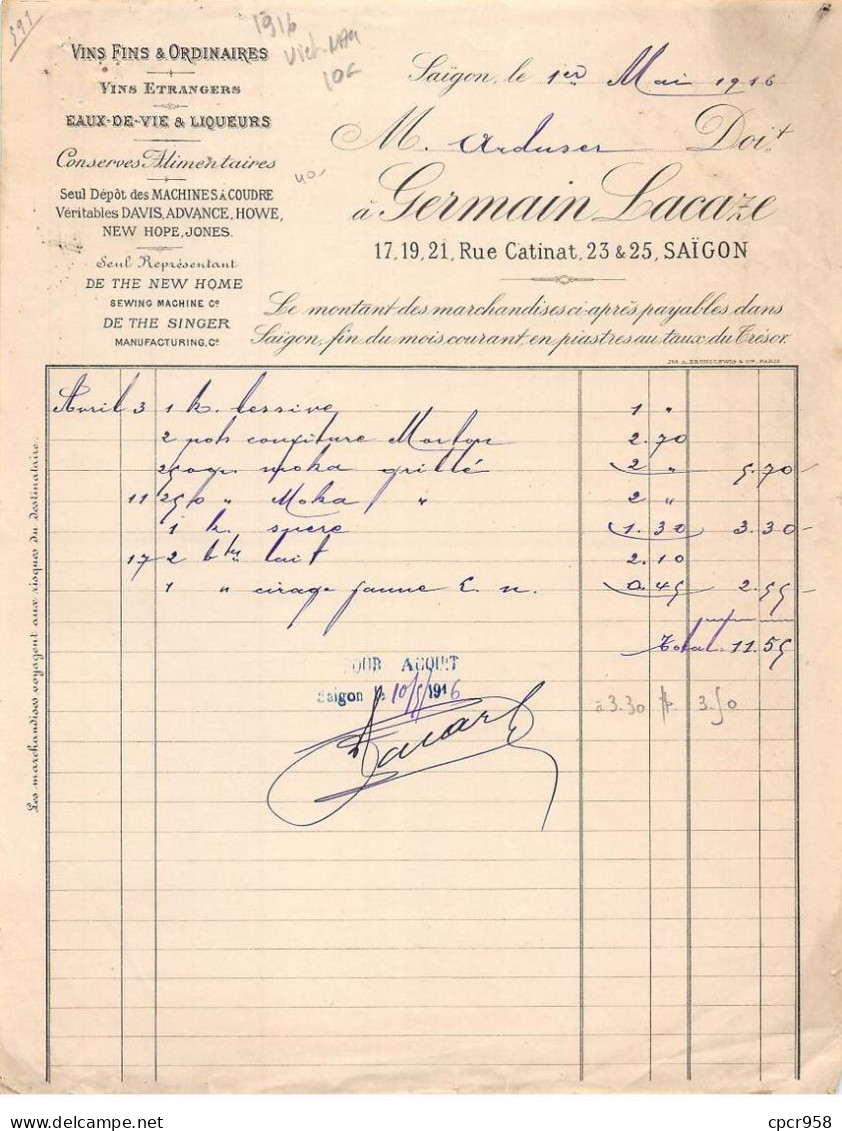 391
1916
Viet-Nam
10€
VINS FINS & ORDINAIRES
VINS ETRANGERS
EAUX-DE-VIE & LIQUEURS
Conserves Alimentaires
Seul Dépôt des MACHINES À COUDRE
Véritables DAVIS, ADVANCE, HOWE,
NEW HOPE, JONES.
Seul Représentant
DE THE NEW HOME
SEWING MACHINE Co
DE THE SINGER
MANUFACTURING. Co
Saïgon, le 1er Mai 1916
M. Arduser Doit
à Germain Lacaze
17, 19, 21, Rue Catinat, 23 & 25, SAÏGON
Le montant des marchandises ci-après payables dans
Saïgon, fin du mois courant, en piastres au taux du Trésor.
Les marchandises voyagent aux risques du destinataire.
Avril 3 1 k. lessive 1 "
2 pots confiture Morton 2.70
250 gr. moka grillé 2 " 5.70
11 250 " Moka " 2 "
1 k. sucre 1.30 3.30
17 2 btes lait 2.10
1 " cirage jaune E. n. 0.45 2.55
Total 11.55
POUR ACQUIT
Saigon le 10/5/1916
à 3.30 3.50
cpcr958